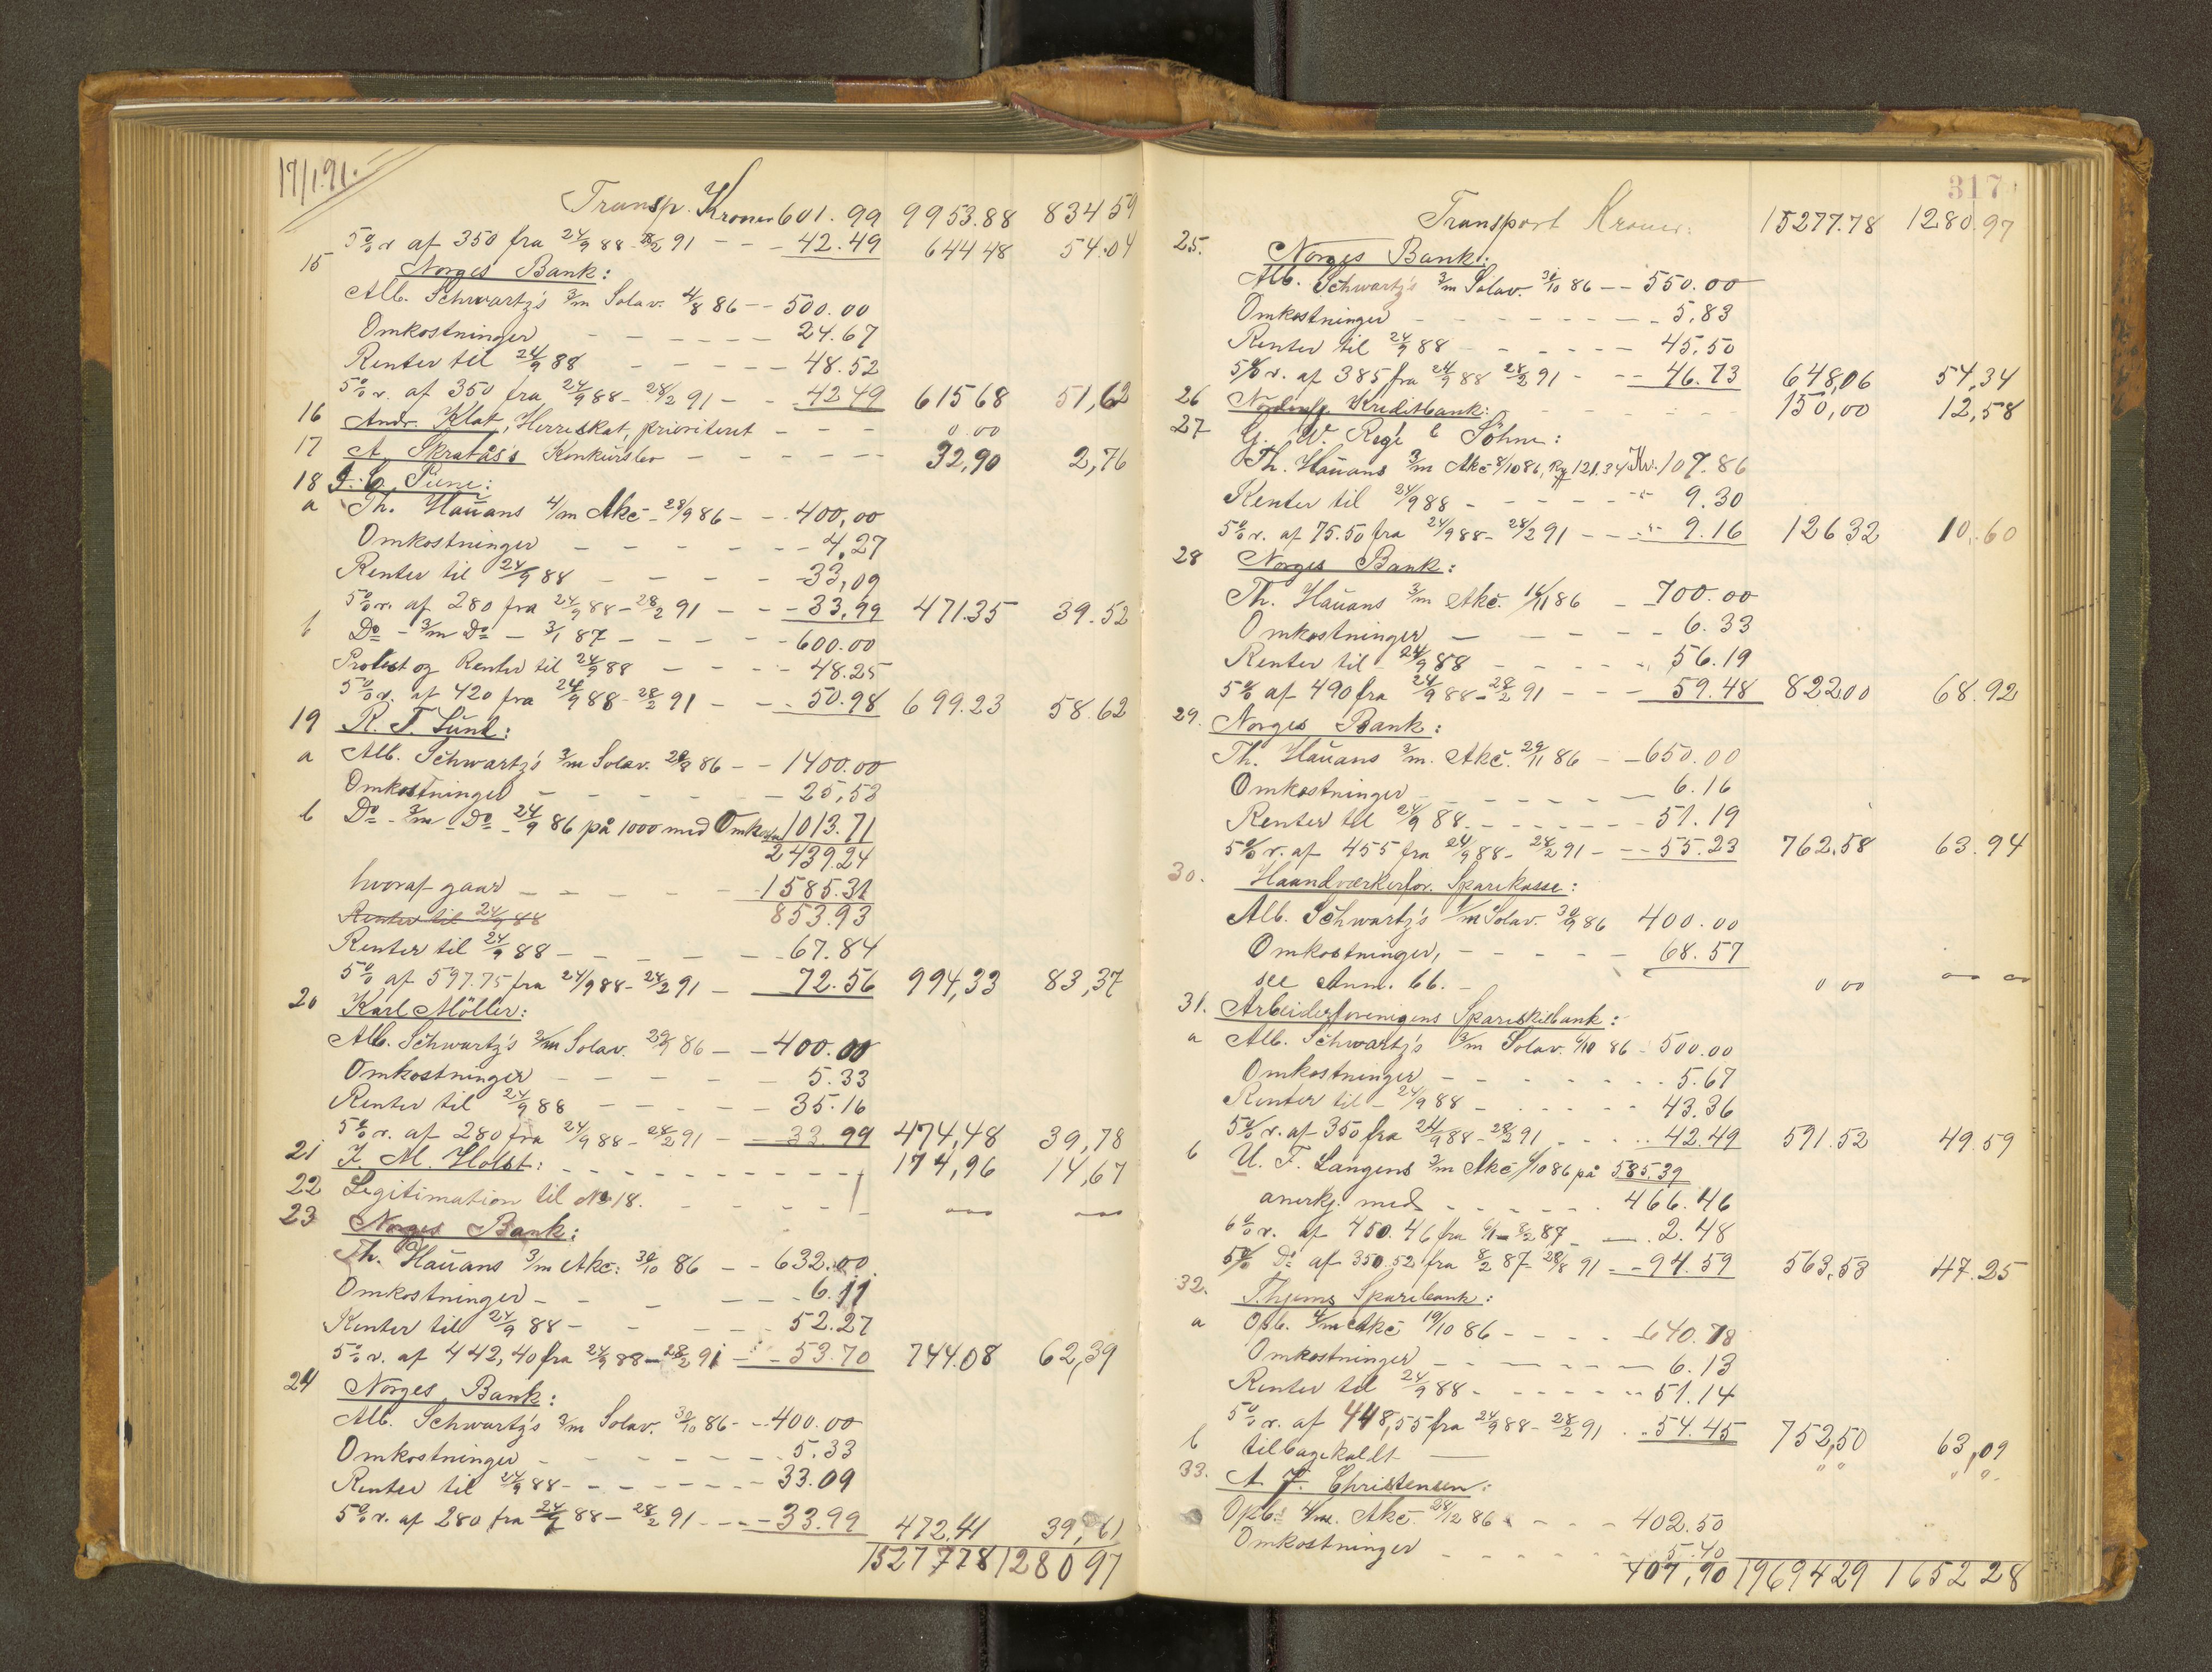 17/1.91.
Transp. Kroner 601.99 9953.88 834 59
5% r af 350 fra 24/9 88-28/2 91 - - - 42.49 644 48 54.04
15 Norges Bank:
Alb. Schwartz's 3/m Solav. 4/8 86 - - 500.00
Omkostninger - - - - - 24.67
Renter til 24/9 88 - - - - - 48.52
5% r. af 350 fra 24/9 88 - 28/2 91 - - 42 49 615 68 51,62
16 Andr. Klot, Herredskat, prioriteret - - - 0.00
17 A. Skratås's Konkursbo - - - - - - 32,90 2,76
18 J. C. Piene:
a Th. Hauans 4/m Akc - 28/9 86 - - 400,00
Omkostninger - - - - - - 4,27
Renter til 24/9 88 - - - - - 33,09
5% r. af 280 fra 24/9 88 - 28/2 91 - - - 33,99 471.35 39.52
b Do - 3/m Do - 3/1 87 - - - - - 600.00
Protest og Renter til 24/9 88 - - - - 48.25
5% r. af 420 fra 24/9 88 - 28/2 91 - - 50.98 699.23 58.62
19 R. F. Lund:
a Alb. Schwartz's 3/m Solav. 28/8 86 - - 1400.00
Omkostninger - - - - - - 25,53
b Do - 3/m - Do - 24/9 86 på 1000 med Omkostn 1013.71
2439 24
hvoraf gaar - - - - - 1585.31
853.93
Renter til 24/9 88
Renter til 24/9 88 - - - - - - 67.84
5% af 597.75 fra 24/9 88 - 28/2 91 - 72.56 994,33 83,37
20 Karl Möller:
Alb. Schwartz's 3/m Solav. 29/9 86 - - 400.00
Omkostninger - - - - - - 5.33
Renter til 24/9 88 - - - - - 35.16
5% r. af 280 fra 24/9 88 - 28/2 91 - - 33 99 474,48 39,78
21 J. M. Holst: - - - - - - - - - - 174,96 14,67
22 Legitimation til No 18. - - - - - -
23 Norges Bank:
Th. Hauans 3/m Akc: 30/10 86 - - 632.00
Omkostninger - - - - - - 6.11
Renter til 24/9 88 - - - - - 52.27
5% r. af 442,40 fra 24/9 88 - 28/2 91 - - 53.70 744.08 62,39
24 Norges Bank:
Alb. Schwartz's 3/m Solav. 30/10 86 - - 400.00
Omkostninger - - - - - - 5.33
Renter til 24/9 88 - - - - - - - 33.09
5% r. af 280 fra 24/9 88 - 28/2 91 - - - 33.99 472.41 39,61
15277 78 1280 97
317
Transport Kroner: 15277.78 1280.97
25. Norges Bank:
Alb. Schwartz's 3/m Solav. 31/10 86 - - 550.00
Omkostninger - - - - - - - - 5.83
Renter til 24/9 88 - - - - - 45.50
5% r. af 385 fra 24/9 88 28/2 91 - - - 46.73 648,06 54,34
26 Kreditbank: - - - - - - 150,00 12,58
27 G. W. Rege & Söhne:
Th. Hauans 3/m Akc 8/10 86, 121.34 Kr. 107.86
Renter til 24/9 88 - - - - - - 9.30
5% r. af 75.50 fra 24/9 88 - 28/2 91 - - - 9.16 126 32 10.60
28 Norges Bank:
Th. Hauans 3/m Akc. 16/11 86 - - 700.00
Omkostninger - - - - - 6.33
Renter til - 24/9 88 - - - - - 56.19
5% af 490 fra 24/9 88 - 28/2 91 - - - 59.48 822 00 68.92
29. Norges Bank:
Th. Hauans 3/m. Akc. 29/11 86 - - 650.00
Omkostninger - - - - - - 6.16
Renter til 24/9 88. - - - - - - 51.19
5% r. af 455 fra 24/9 88 - 28/2 91 - - - 55.23 762.58 63.94
30. Haandværkerfor. Sparekasse:
Alb. Schwartz's /m Solav. 30/9 86 400.00
Omkostninger, - - - - - 68.57
see Anm. 66. - 0 00
31. Arbeiderforenigens Spareskilbank:
a Alb. Schwartz's 3/m Solav. 6/10 86 - 500.00
Omkostninger - - - - - - - 5.67
Renter til - 24/9 88 - - - - - - 43.36
5% r. af 350 fra 24/9 88 - 28/2 91 - - - - 42.49 591.52 49.59
b U. F. Langens 3/m Akc /10 86 på 585.39
anerkj. med - - - - - - 466.46
6% r. af 450.46 fra 6/1 - 8/2 87 - - 2.48
5% Do af 350.52 fra 8/2 87 28/8 91 - - 94.59 563,53 47.25
32. Thjems Sparebank:
a Opb. 4/m Akc 19/10 86 - - - - 640.78
Omkostninger - - - - - - 6.13
Renter til 24/9 88 - - - - - - 51.14
5% r. af 448,55 fra 24/9 88 - 28/2 91 - - 54.45 752,50 63,09
b tilbagekaldt — " " " "
33. A. F. Christensen:
Opb. 4/m. Akc. 28/12 86 - - - - 402.50
Omkostninger - - - - - - 5.40
407,90 19694 29 1652 28